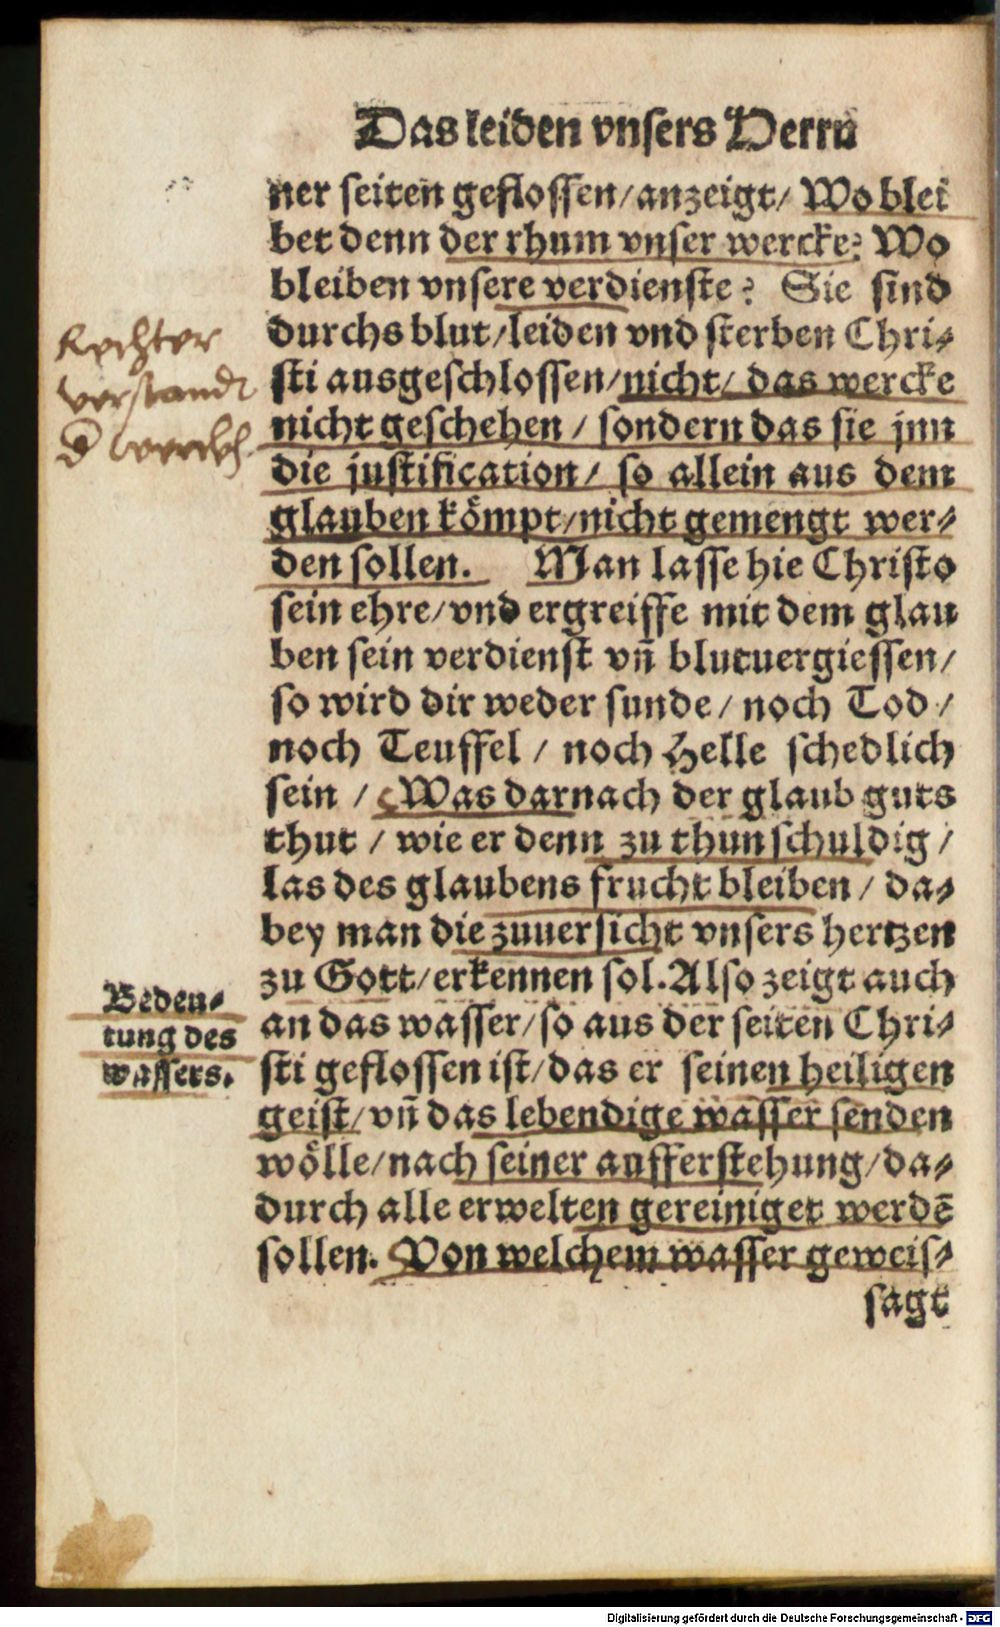 Das leiden vnsers Herrn
ner seiten geflossen/anzeigt/ Wo blei
bet denn der rhum vnser wercke? Wo
bleiben vnsere verdienste? Sie sind
durchs blut/leiden vnd sterben Chri⸗
sti ausgeschlossen/nicht/ das wercke
nicht geschehen / sondern das sie jnn
die justification/ so allein aus dem
glauben kömpt/nicht gemengt wer⸗
den sollen. Man lasse hie Christo
sein ehre/vnd ergreiffe mit dem glau
ben sein verdienst vn̄ blutuergiessen/
so wird dir weder sunde/ noch Tod/
noch Teuffel / noch Helle schedlich
sein / Was darnach der glaub guts
thut / wie er denn zu thun schuldig /
las des glaubens frucht bleiben / da⸗
bey man die zuuersicht vnsers hertzen
zu Gott/erkennen sol. Also zeigt auch
an das wasser/so aus der seiten Chri⸗
sti geflossen ist/das er seinen heiligen
geist/vn̄ das lebendige wasser senden
wölle/nach seiner aufferstehung/da⸗
durch alle erwelten gereiniget werdē
sollen. Von welchem wasser geweis⸗
sagt
Rechter
verstandt
d werck
Beden⸗
tung des
wassers.
Digitalisierung gefördert durch die Deutsche Forschungsgemeinschaft - DFG